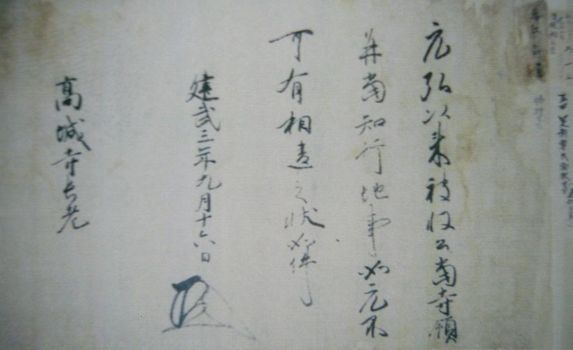 元弘以来被収公当寺領
并当知行地事如元不
可有相違之状如件
建武三年九月十六日
高城寺長老